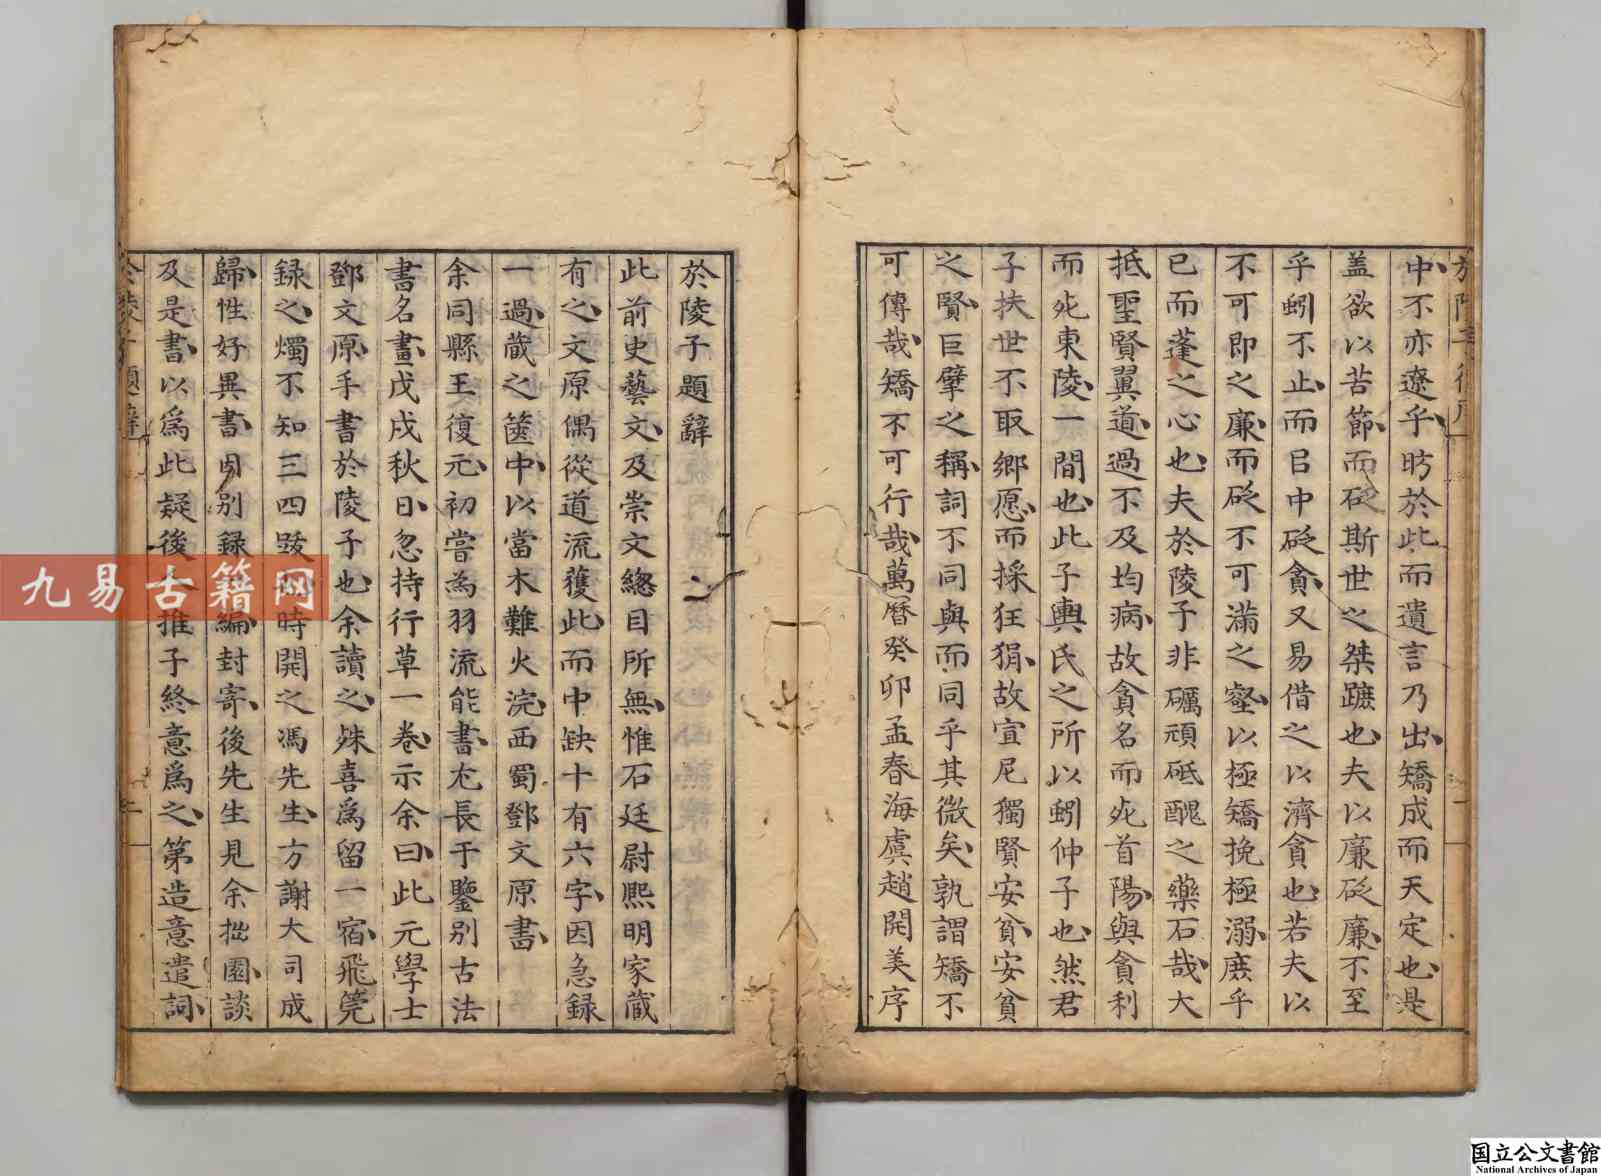 中不亦遼乎昉於此而遺言乃出矯成而天定也是
盖欲以苦節而砭斯世之桀蹠也夫以廉砭廉不至
乎蚓不止而㠯中砭貪又易借之以濟貪也若夫以
不可即之廉而砭不可滿之壑以極矯挽極溺庻乎
已而蓬之心也夫於陵子非礪頑砥醜之藥石哉大
抵聖賢翼道過不及均病故貪名而死首陽與貪利
而死東陵一間也此子輿氏之所以蚓仲子也然君
子扶世不取鄉愿而採狂狷故宣尼獨賢安貧安貧
之賢巨擘之稱詞不同與而同乎其微矣孰謂矯不
可傳哉矯不可行哉萬曆癸卯孟春海虞趙開美序
於陵子題辭
此前史藝文及崇文總目所無惟石廷尉熙明家蔵
有之文原偶從道流獲此而中缺十有六字因急録
一過蔵之篋中以當木難火浣西蜀鄧文原書
余同縣王復元初嘗為羽流能書尤長于鑒別古法
書名畫戊戌秋日忽持行草一卷示余曰此元學士
鄧文原手書於陵子也余讀之殊喜爲留一宿飛筦
録之燭不知三四跋時開之馮先生方謝大司成
歸性好異書因別録編封寄後先生見余拙園談
及是書以爲此疑後推子終意爲之第造意遣詞
於陵子題辭
九易古籍网
国立公文書館
National Archives of Japan